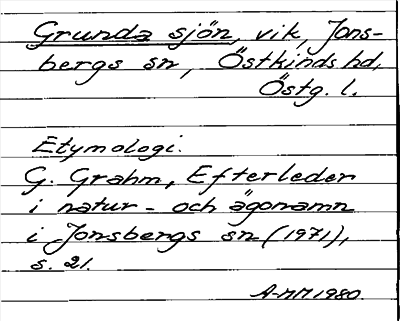 Grunda sjön, vik, Jons-
bergs sn, Östkinds hd,
Östg. l.
Etymologi.
G. Grahm, Efterleder
i natur- och ägonamn
i Jonsbergs sn (1971),
s. 21.
A-MM 1980.